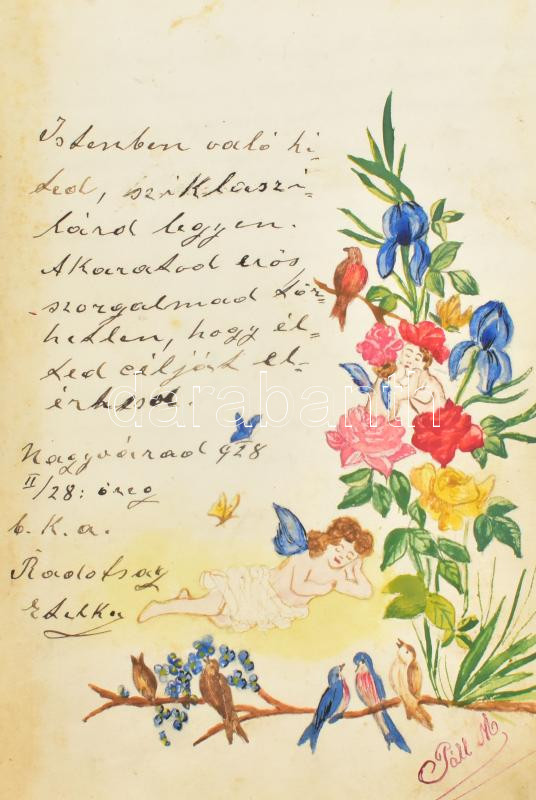 Istenben való hi-
ted, sziklaszi-
lárd legyen.
Akaratod erős,
szorgalmad tör-
hetlen, hogy él-
ted célját el-
érhesd.
Nagyvárad 928
II/28: öreg
b. K. a.
Radotsay
Etelka
Páll M
darabanth